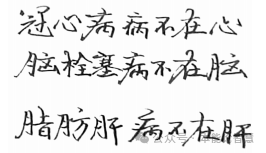 冠心病病不在心
脑栓塞病不在脑
脂肪肝病不在肝
公众号